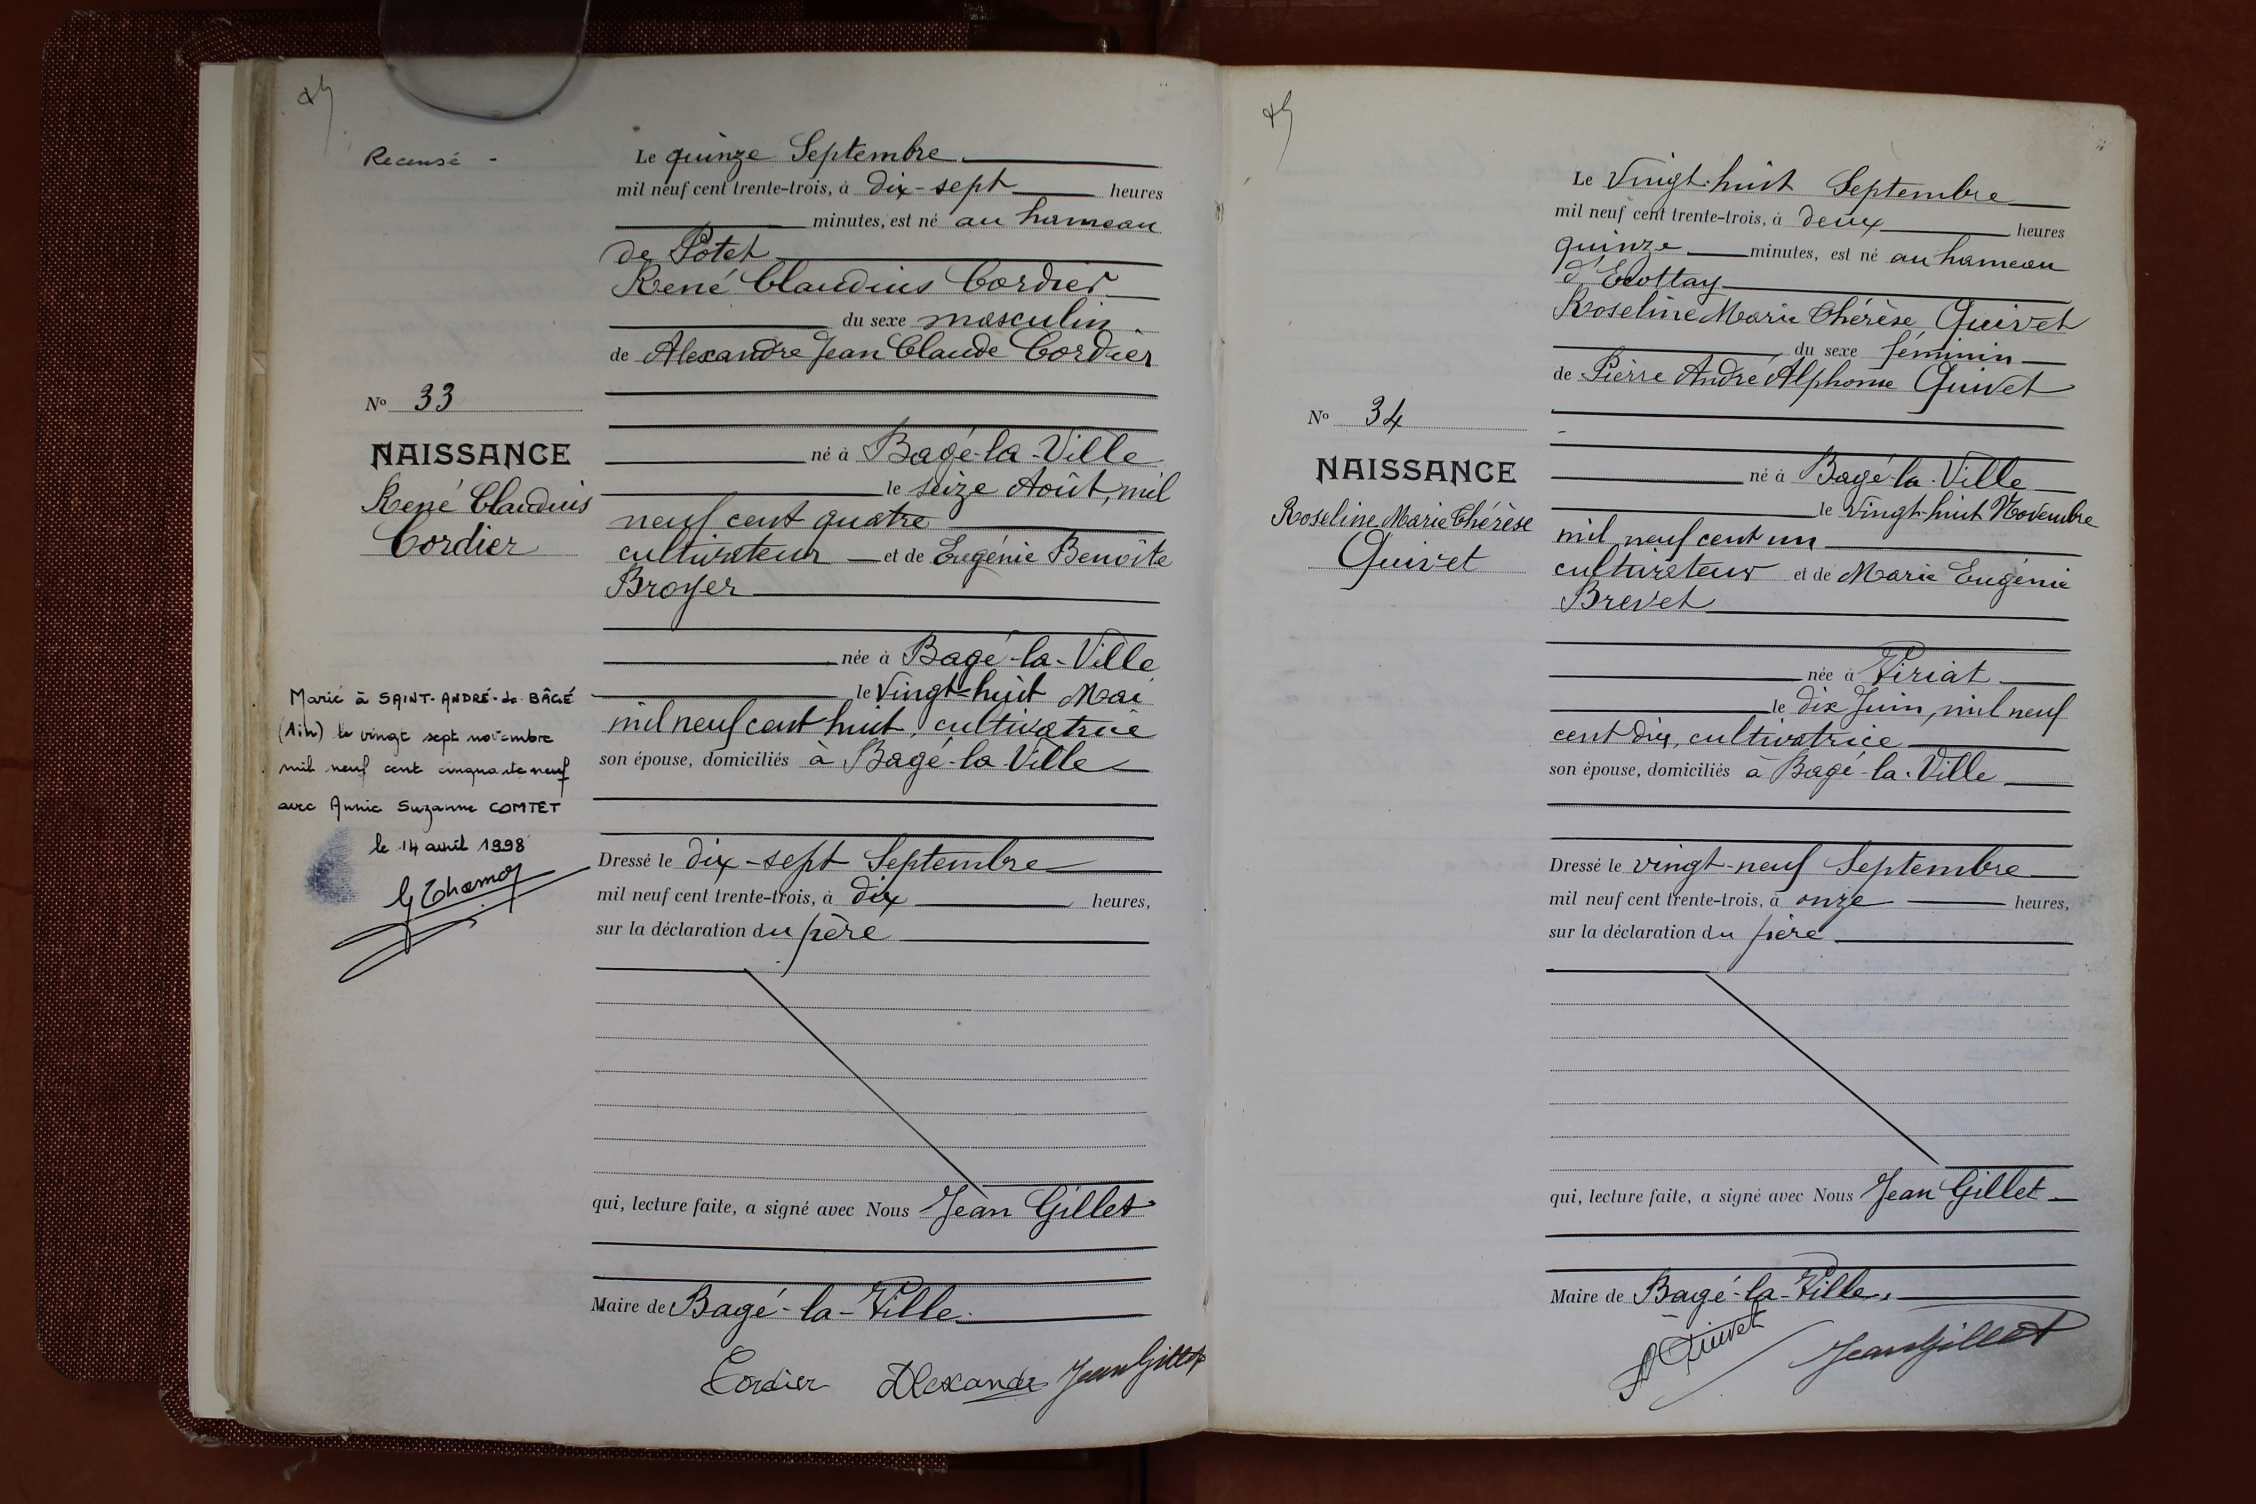 Recensé -
Le quinze Septembre
mil neuf cent trente-trois, à dix-sept heures
minutes, est né au hameau
de Potet
René Claudius Cordier
du sexe masculin
de Alexandre Jean Claude Cordier
Nº 33
NAISSANCE
René Claudius
Cordier
né à Bagé-la-Ville
le seize Août, mil
neuf cent quatre
cultivateur et de Eugénie Benoîte
Broyer
née à Bagé-la-Ville
le Vingt-huit Mai
mil neuf cent huit, cultivatrice
son épouse, domiciliés à Bagé-la-Ville
Marié à SAINT-ANDRÉ-de-BÂGÉ
(Ain) le vingt sept novembre
mil neuf cent cinquante neuf
avec Annie Suzanne COMTET
le 14 avril 1998
Dressé le dix-sept Septembre
mil neuf cent trente-trois, à dix heures,
sur la déclaration du père
qui, lecture faite, a signé avec Nous Jean Gillet
Maire de Bagé-la-Ville.
Cordier Alexandre Jean Gillet
Le Vingt-huit Septembre
mil neuf cent trente-trois, à deux heures
quinze minutes, est né au hameau
d'Ecottay
Roseline Marie Thérèse Quivet
du sexe féminin
de Pierre André Alphonse Quivet
Nº 34
NAISSANCE
Roseline Marie Thérèse
Quivet
né à Bagé-la-Ville
le Vingt-huit Novembre
mil neuf cent un
cultivateur et de Marie Eugénie
Brevet
née à Viriat
le dix Juin, mil neuf
cent dix, cultivatrice
son épouse, domiciliés à Bagé-la-Ville
Dressé le vingt-neuf Septembre
mil neuf cent trente-trois, à onze heures,
sur la déclaration du père
qui, lecture faite, a signé avec Nous Jean Gillet
Maire de Bagé-la-Ville.
A Quivet Jean Gillet